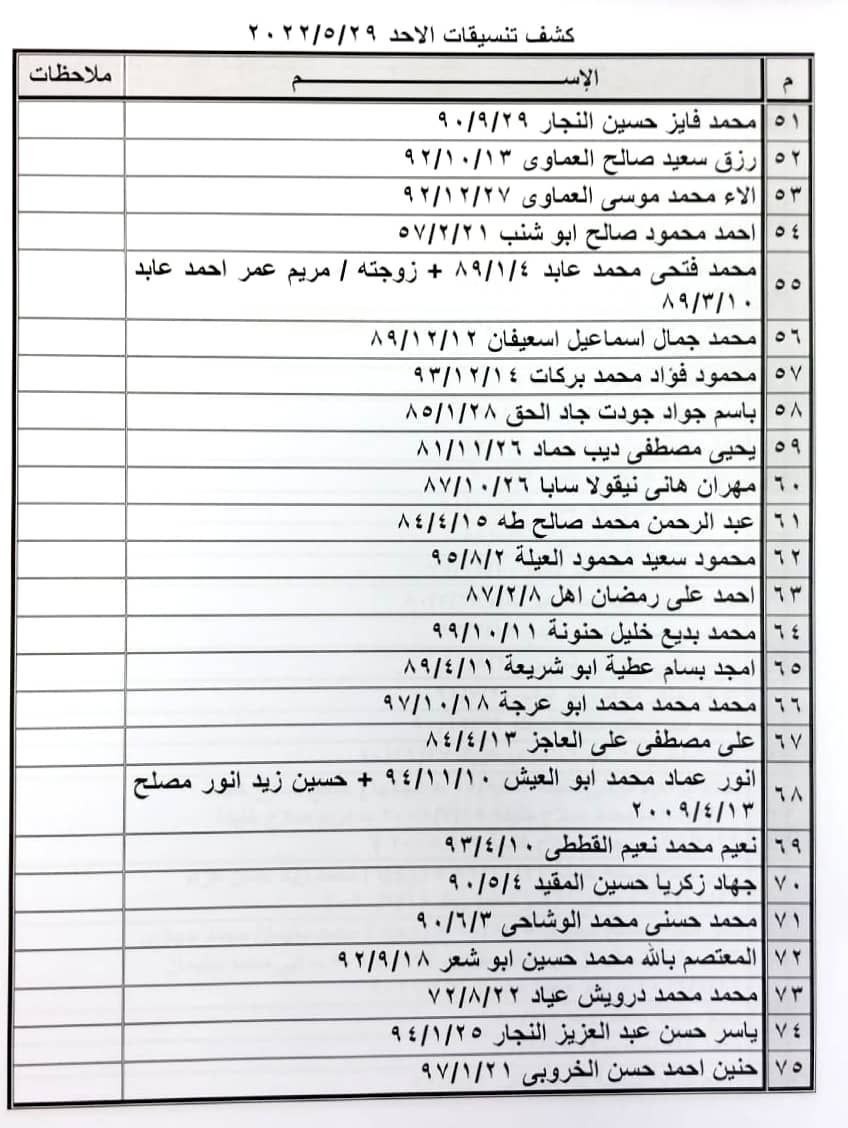 كشف تنسيقات الاحد ٢٠٢٢/٥/٢٩
م الإســـــــــم ملاحظات
٥١ محمد فايز حسين النجار ٩٠/٩/٢٩
٥٢ رزق سعيد صالح العماوى ٩٢/١٠/١٣
٥٣ الاء محمد موسى العماوى ٩٢/١٢/٢٧
٥٤ احمد محمود صالح ابو شنب ٥٧/٢/٢١
٥٥ محمد فتحى محمد عابد ٨٩/١/٤ + زوجته / مريم عمر احمد عابد
٨٩/٣/١٠
٥٦ محمد جمال اسماعيل اسعيفان ٨٩/١٢/١٢
٥٧ محمود فؤاد محمد بركات ٩٣/١٢/١٤
٥٨ باسم جواد جودت جاد الحق ٨٥/١/٢٨
٥٩ يحيى مصطفى ديب حماد ٨١/١١/٢٦
٦٠ مهران هانى نيقولا سابا ٨٧/١٠/٢٦
٦١ عبد الرحمن محمد صالح طه ٨٤/٤/١٥
٦٢ محمود سعيد محمود العيلة ٩٥/٨/٢
٦٣ احمد على رمضان اهل ٨٧/٢/٨
٦٤ محمد بديع خليل حنونة ٩٩/١٠/١١
٦٥ امجد بسام عطية ابو شريعة ٨٩/٤/١١
٦٦ محمد محمد محمد ابو عرجة ٩٧/١٠/١٨
٦٧ على مصطفى على العاجز ٨٤/٤/١٣
٦٨ انور عماد محمد ابو العيش ٩٤/١١/١٠ + حسين زيد انور مصلح
٢٠٠٩/٤/١٣
٦٩ نعيم محمد نعيم القططى ٩٣/٤/١٠
٧٠ جهاد زكريا حسين المقيد ٩٠/٥/٤
٧١ محمد حسنى محمد الوشاحى ٩٠/٦/٣
٧٢ المعتصم بالله محمد حسين ابو شعر ٩٢/٩/١٨
٧٣ محمد محمد درويش عياد ٧٢/٨/٢٢
٧٤ ياسر حسن عبد العزيز النجار ٩٤/١/٢٥
٧٥ حنين احمد حسن الخروبى ٩٧/١/٢١